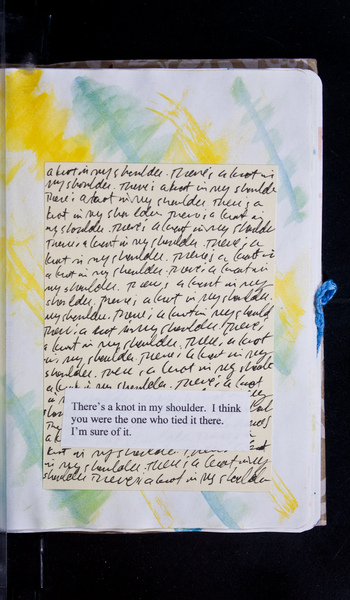 a knot in my shoulder. There's a knot in
my shoulder. There's a knot in my shoulder
There's a knot in my shoulder There's a
knot in my shoulder There's a knot in
my shoulder. There's a knot in my shoulder
There's a knot in my shoulder. There's a
knot in my shoulder. There's a knot in
a knot in my shoulder. There's a knot in
my shoulder. There's a knot in my
shoulder. There's a knot in my shoulder.
my shoulder. There's a knot in my should
There's a knot in my shoulder. There's
a knot in my shoulder. There's a knot
in my shoulder. There's a knot in my
shoulder. There's a knot in my shoulder
a knot in my shoulder. There's a knot
There's a knot in my shoulder. I think
you were the one who tied it there.
I'm sure of it.
knot in my shoulder
in my shoulder. There's a knot in my
shoulder There's a knot in my shoulder